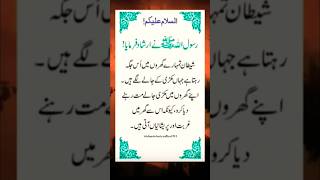 السلام علیکم!
رسول اللہ ﷺ نے ارشاد فرمایا!
شیطان تمہارے گھروں میں اُس جگہ
رہتا ہے جہاں مکڑی کے جالے لگے ہیں۔
اپنے گھروں میں مکڑی جالے مت رہنے
دیا کرو، کیونکہ اس سے گھر میں
غربت اور پریشانیاں آتی ہیں۔